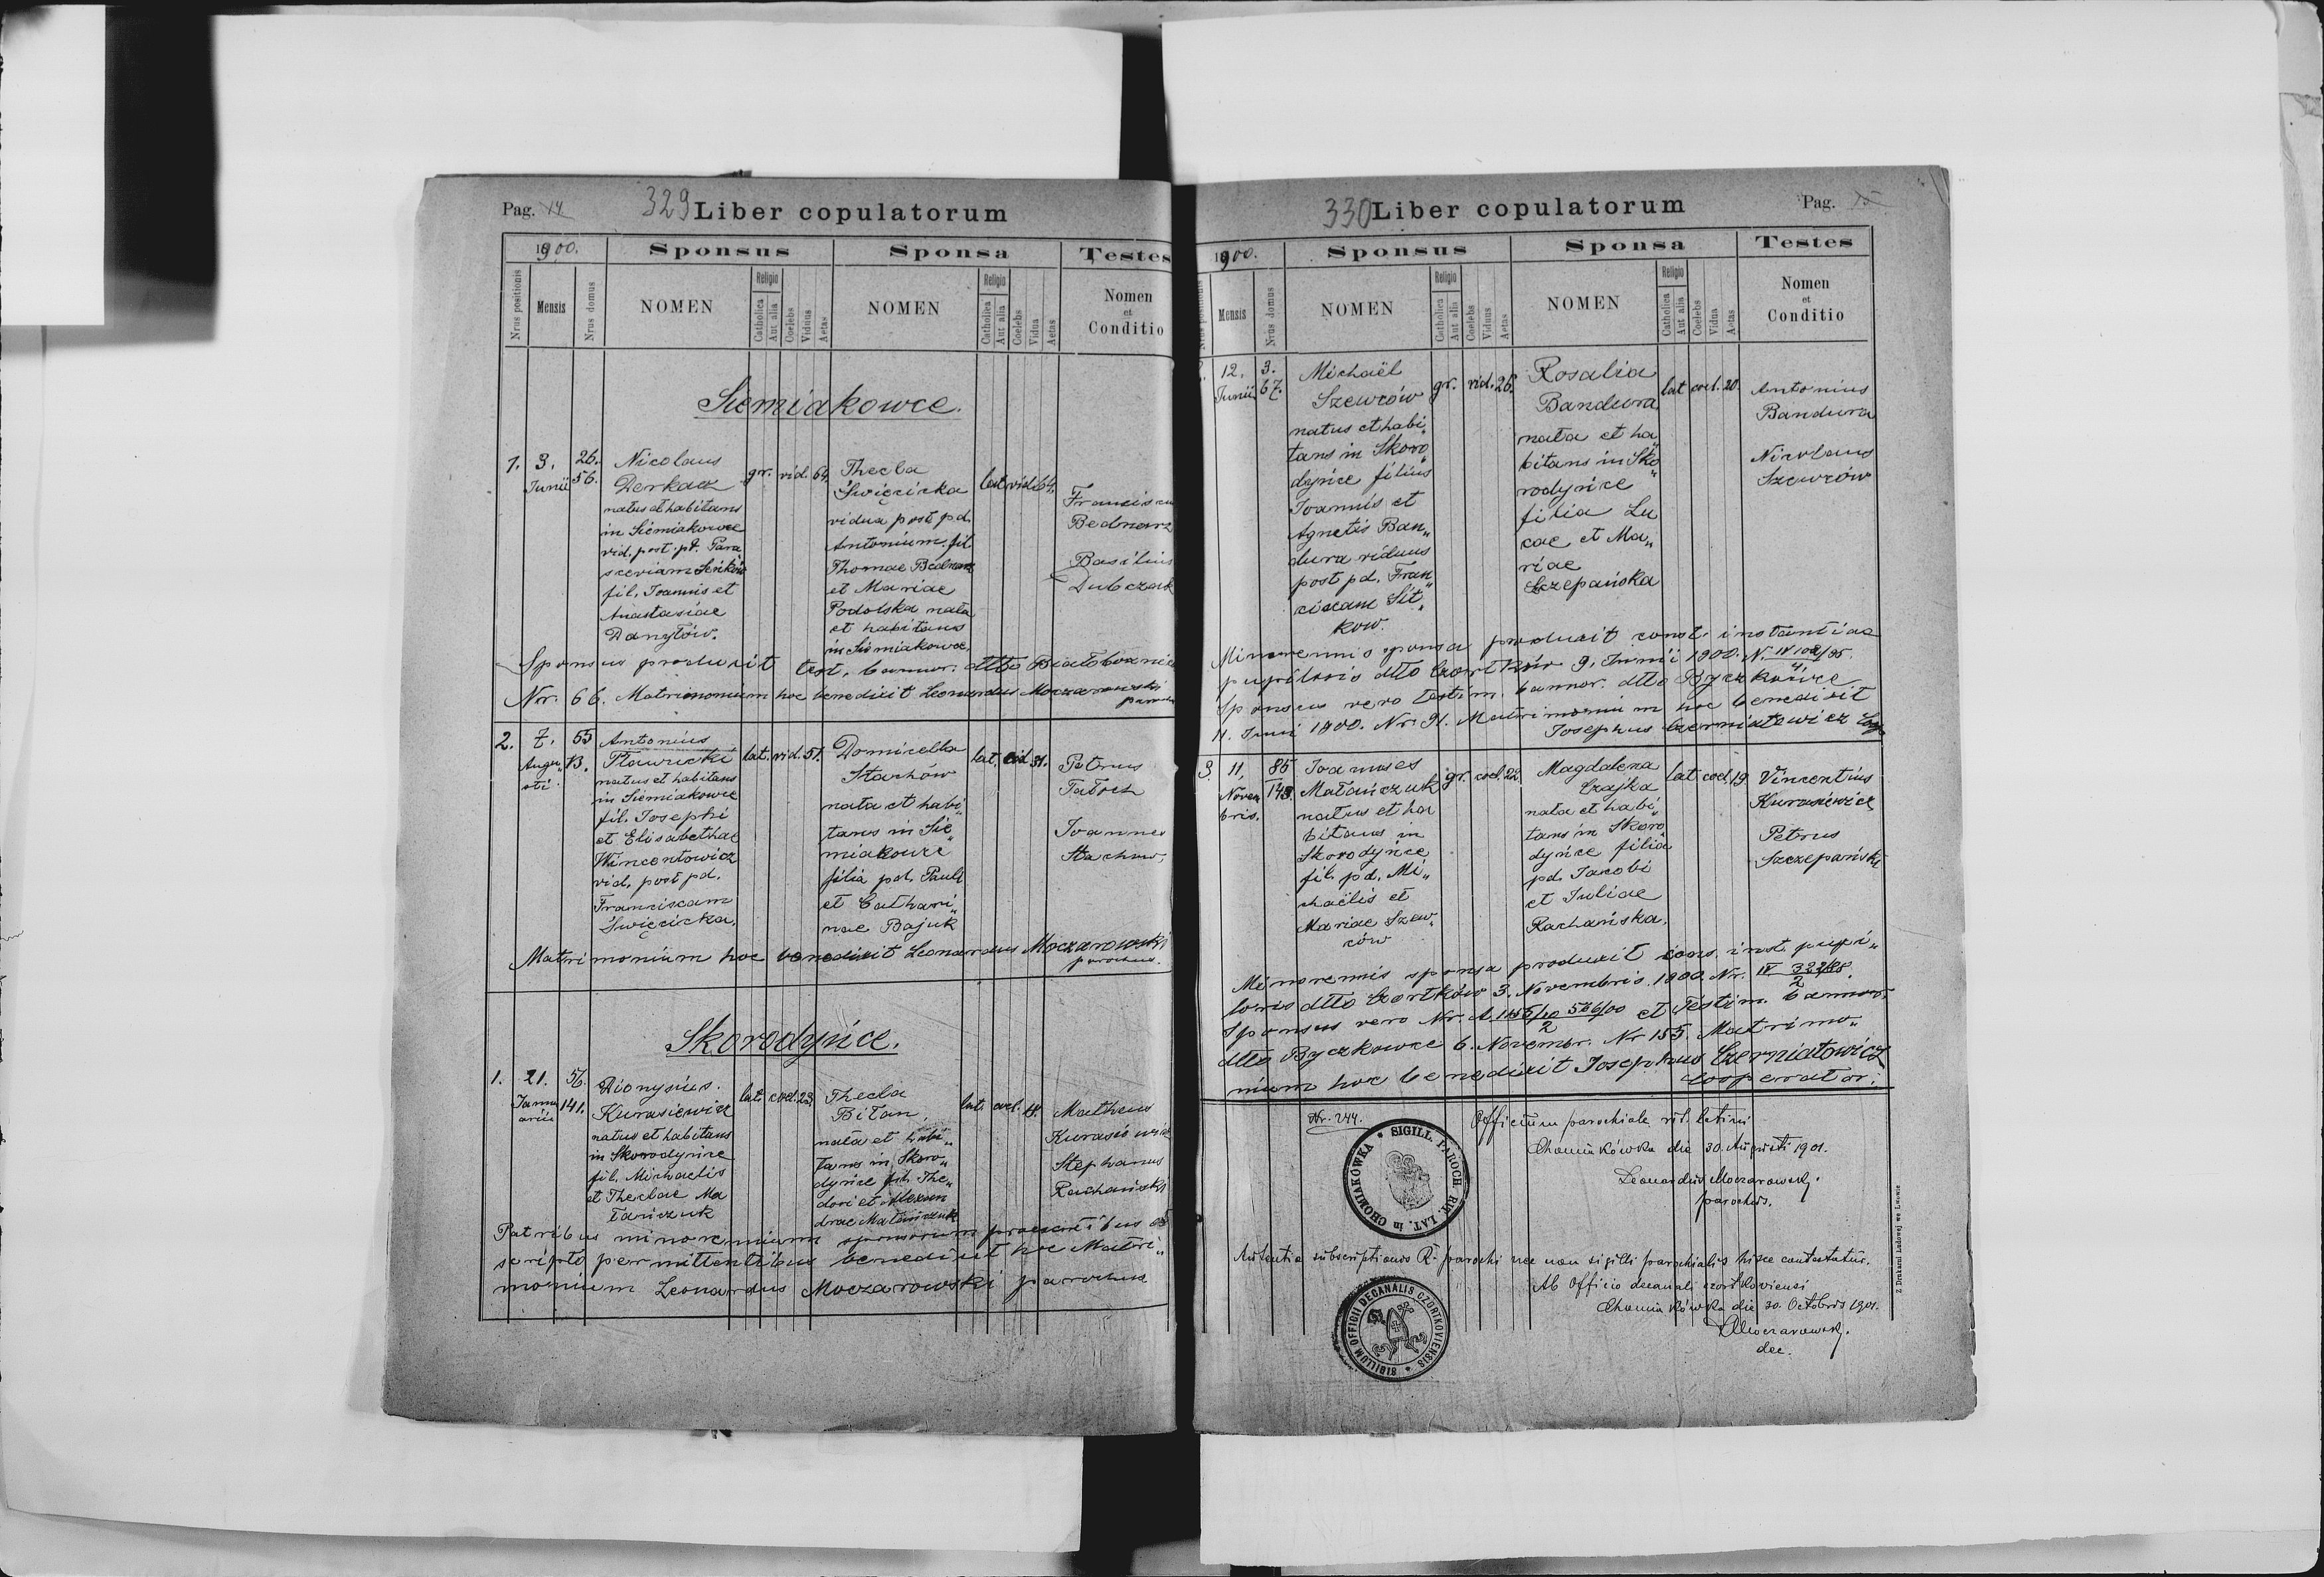 Pag. 14
329 Liber copulatorum
1900.
Sponsus
Sponsa
Testes
Nrus positionis
Mensis
Nrus domus
NOMEN
Religio
Catholica
Aut alia
Coelebs
Viduus
Aetas
NOMEN
Religio
Catholica
Aut alia
Coelebs
Vidua
Aetas
Nomen
et
Conditio
Siemiakowce.
1. 3. Junii
26.
56.
Nicolaus
Derkacz
natus et habitans
in Siemiakowce
vid. post pd. Para
sceviam Seńków
fil. Joannis et
Anastasiae
Danyłów.
gr. vid. 64.
Thecla
Święcicka
vidua post pd.
Antonium fil.
Thomae Bednarz
et Mariae
Podolska nata
et habitans
in Siemiakowce.
lat. vid. 64.
Franciscu
Bednarz
Basilius
Dubczak
Sponsus produxit test. bannor. dtto Białoboznic
Nr. 66. Matrimonium hoc benedixit Leonardus Moczarowski
paroch
2. 7. Augu„
sti
55
13.
Antonius
Pławucki
natus et habitans
in Siemiakowce
fil. Josephi
et Elisabethae
Wincentowicz
vid. post pd.
Franciscam
Święcicka.
lat. vid. 51.
Domicella
Stachów
nata et habi„
tans in Sie„
miakowce
filia pd. Pauli
et Cathari„
nae Bajuk
lat. vid. 31.
Petrus
Tałoch
Joannes
Stachow.
Matrimonium hoc benedixit Leonardus Moczarowski
parochus.
Skorodyńce.
1. 21. Janu
arii
56.
141.
Dionysius
Kurasiewicz
natus et habitans
in Skorodyńce
fil. Michaelis
et Theclae Ma
tańczuk
lat. coel. 23.
Thecla
Bilan
nata et habi„
tans in Skoro„
dyńce fil. The„
dori et Alexan
drae Matańczuk
lat. coel.
Matheus
Kurasiewicz
Stephanus
Rachański
Patribus minorennium sponsorum praesentibus et
scripto permittentibus benedixit hoc Matri„
monium Leonardus Moczarowski parochus
330 Liber copulatorum
Pag. 15
1900.
Sponsus
Sponsa
Testes
Nrus positionis
Mensis
Nrus domus
NOMEN
Religio
Catholica
Aut alia
Coelebs
Viduus
Aetas
NOMEN
Religio
Catholica
Aut alia
Coelebs
Vidua
Aetas
Nomen
et
Conditio
12. Junii
3.
67.
Michaël
Szewców
natus et habi„
tans in Skoro„
dyńce filius
Joannis et
Agnetis Ban„
dura viduus
post pd. Fran„
ciscam Sit„
kow.
gr. vid. 26.
Rosalia
Bandura
nata et ha
bitans in Sko„
rodyńce
filia Lu
cae et Ma„
riae
Szczepańska
lat. coel. 20.
Antonius
Bandura
Nicolaus
Szewców
Minorennis sponsa produxit const. instantiae
pupillaris dtto Czortków 9. Junii 1900. N. IV 102/95
4.
Sponsus vero testim. bannor. dtto Byczkowce
11. Junii 1900. Nr. 91. Matrimonium hoc benedixit
Josephus Czerniatowicz
3. 11. Novem
bris.
85
148.
Joannes
Matańczuk
natus et ha
bitans in
Skorodyńce
fil. pd. Mi„
chaëlis et
Mariae Szew„
ców
gr. coel. 22.
Magdalena
Czajka
nata et habi„
tans in Skoro„
dyńce filia
pd. Jacobi
et Juliae
Rachańska.
lat. coel. 19
Vincentius
Kurasiewicz
Petrus
Szczepański
Minorennis sponsa produxit cons. inst. pupi„
laris dtto Czortków 3. Novembris 1900. Nr. IV
2
Sponsus vero Nr. A et testim. bannor.
2
dtto Byczkowce 6. Novembr. Nr 155. Matrimo„
nium hoc benedixit Josephus Czerniatowicz
Cooperator.
Nr. 244.
Officium parochiale rit. latini
Chomiakówka die 30. Augusti 1901.
Leonardus Moczarowski.
parochus.
SIGILL. PAROCH. RIT. LAT. in CHOMIAKÓWKA
subscriptionis R. parochi nec non sigilli parochialis hisce contestatur.
Ab Officio decanali czortkoviensi
Chomiakówka die 30. Octobris 1901.
Moczarowski.
dec.
SIGILLUM OFFICII DECANALIS CZORTKOVIENSIS
Z Drukarni Ludowej we Lwowie